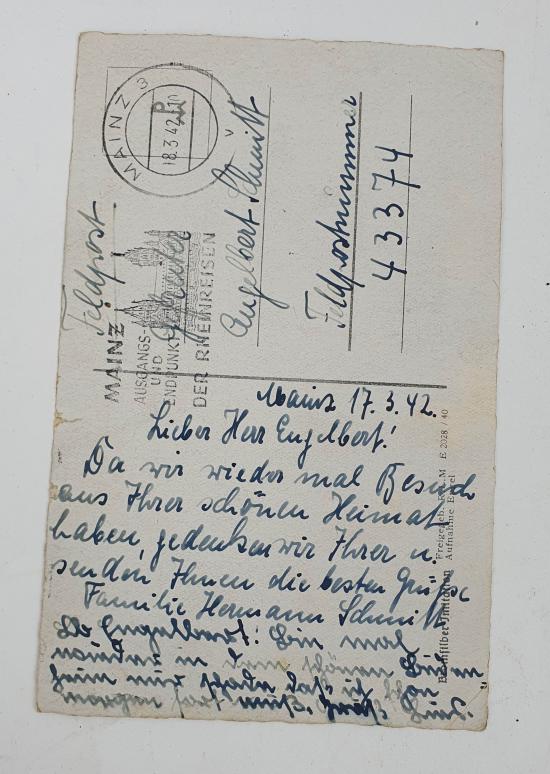 MAINZ 3
18.3.42
Feldpost
MAINZ
AUSGANGS-
UND
ENDPUNKT
DER RHEINREISEN
Gefreiter
Engelbert Schmitt
Feldpostnummer
43374
Mainz 17.3.42.
Lieber Herr Engelbert!
Da wir wieder mal Besuch
aus Ihrer schönen Heimat
haben, gedenken wir Ihrer u.
senden Ihnen die besten Grüsse
Familie Hermann Schmitt
Lb Engelbert! Bin mal
wieder in dem schönen
nur schade daß ich
morgen fort muß. Gruß
Freigegeb. R.L.M E 2028 / 40
Aufnahme